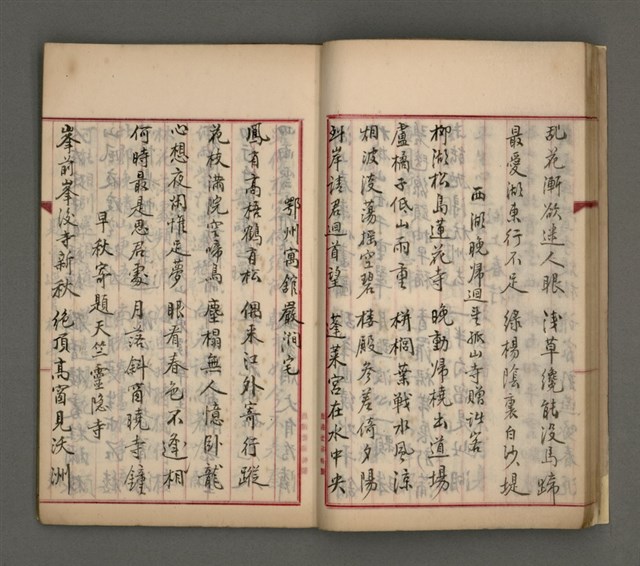 乱花漸欲迷人眼 淺草纔能没馬蹄
最愛湖東行不足 緑楊陰裏白沙堤
西湖晚歸迴望孤山寺贈諸客
柳湖松島蓮花寺 晚動歸橈出道場
盧橘子低山雨重 栟櫚葉戰水風涼
烟波淡蕩摇空碧 樓殿參差倚夕陽
到岸請君迴首望 蓬萊宮在水中央
鄂州寓館嚴澗宅
鳳有高梧鶴有松 偶來江外寄行蹤
花枝滿院空啼鳥 塵榻無人憶卧龍
心想夜閑惟足夢 眼看春色不逢相
何時最是思君處 月落斜窗曉寺鐘
早秋寄題天竺靈隱寺
峯前峯後寺新秋 絶頂高窗見沃洲